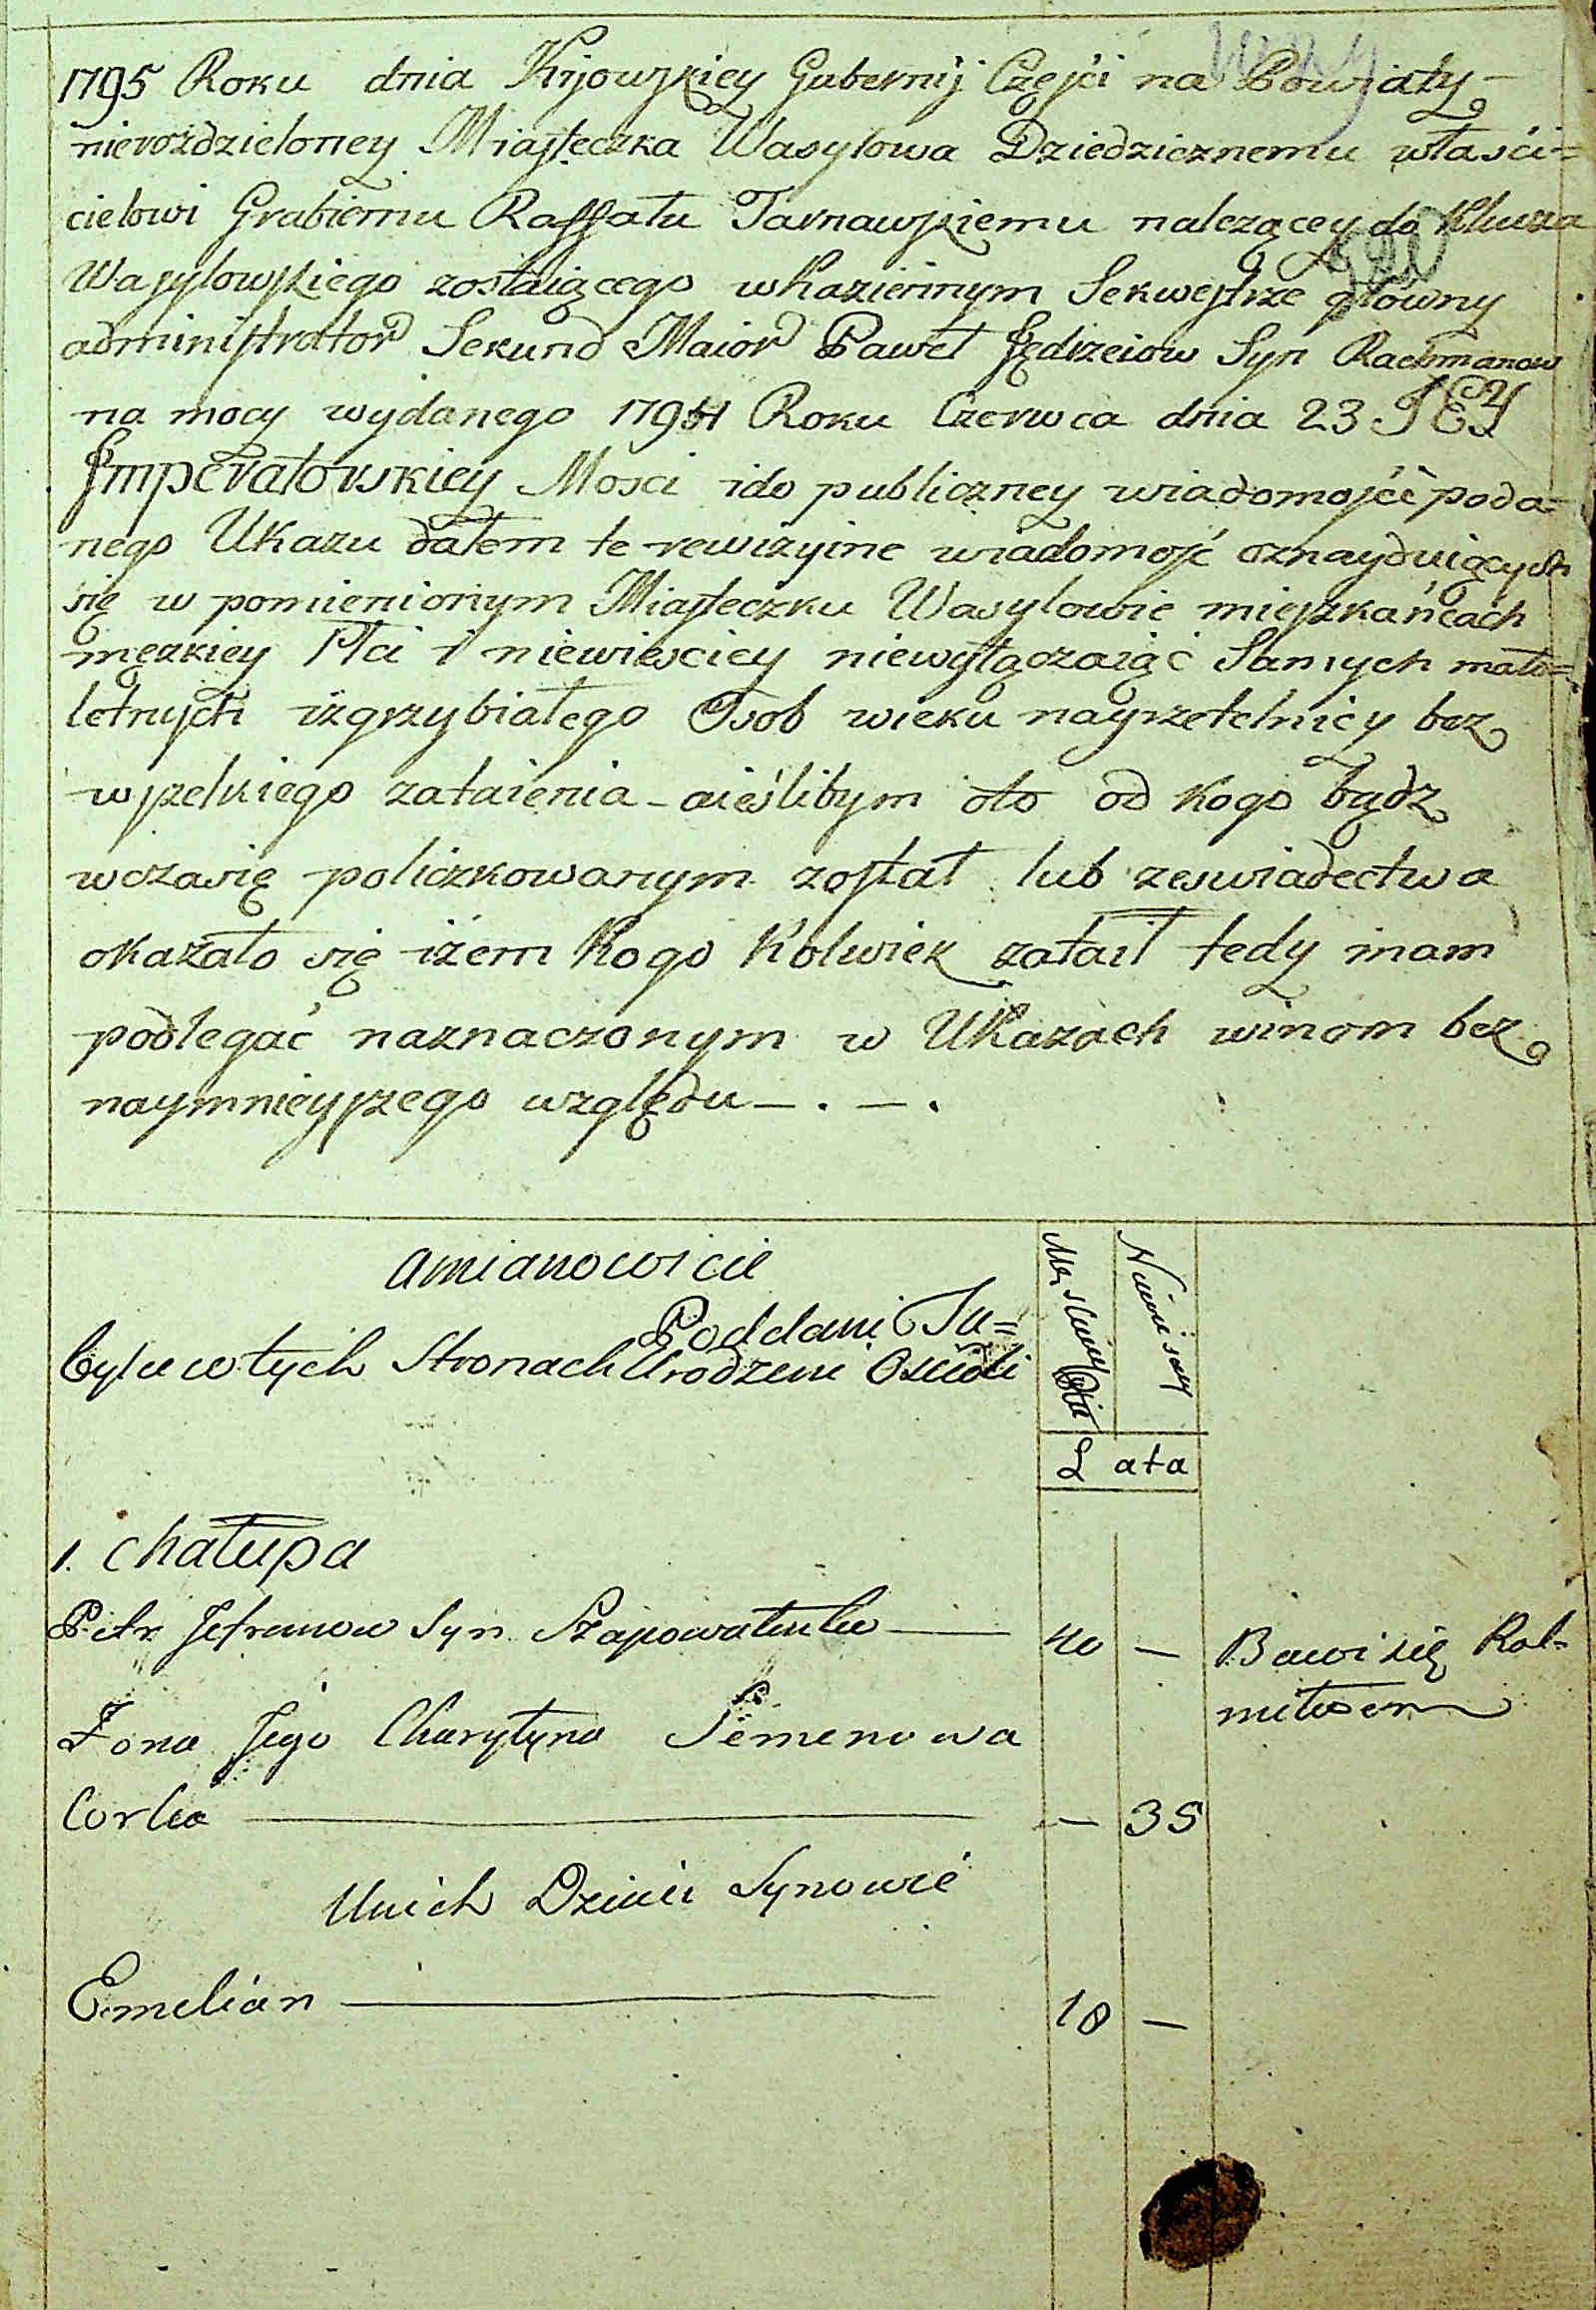 1795 Roku dnia Kijowskiey Gubernij Części na Powiaty
nierozdzieloney Miasteczka Wasylowa Dziedzicznemu właści=
cielowi Grabiemu Raffału Tarnawskiemu należącey do Klucza
Wasylowskiego zostaiącego wkaziennym Sekwestrze główny
administrator Sekund Maior Paweł Jędrzeiow Syn Rachmanow
na mocy wydanego 1794 Roku Czerwca dnia 23 JEY
Jmperatorskiey Mosci ido publiczney wiadomości poda=
nego Ukazu dałem te rewizyine wiadomość oznayduiących
się w pomienionym Miasteczku Wasylowie mieszkańcach
męzkiey Płci i niewiesciey niewyłączaiąc Samych mało=
letnych izgrzybiałego Osob wieku nayrzetelniey bez
wszelkiego zataienia - aieślibym oto od kogo bądz
wczasię policzkowanym został lub zeswiadectwa
okazało się iżem kogo kolwiek zataił tedy mam
podlegać naznaczonym w Ukazach winom bez
naymnieyszego względu — . — .
amianowicie
Poddani Tu=
byli w tych Stronach Urodzeni Osiedli
L ata
1. chałupa
Petr Jefremow Syn Szapowałenko — 40 — Bawi się Rol=
nictwem
Żona Jego Charytyna Semenowa
Corka — — 35
Unich Dzieci Synowie
Emelian — 18 —